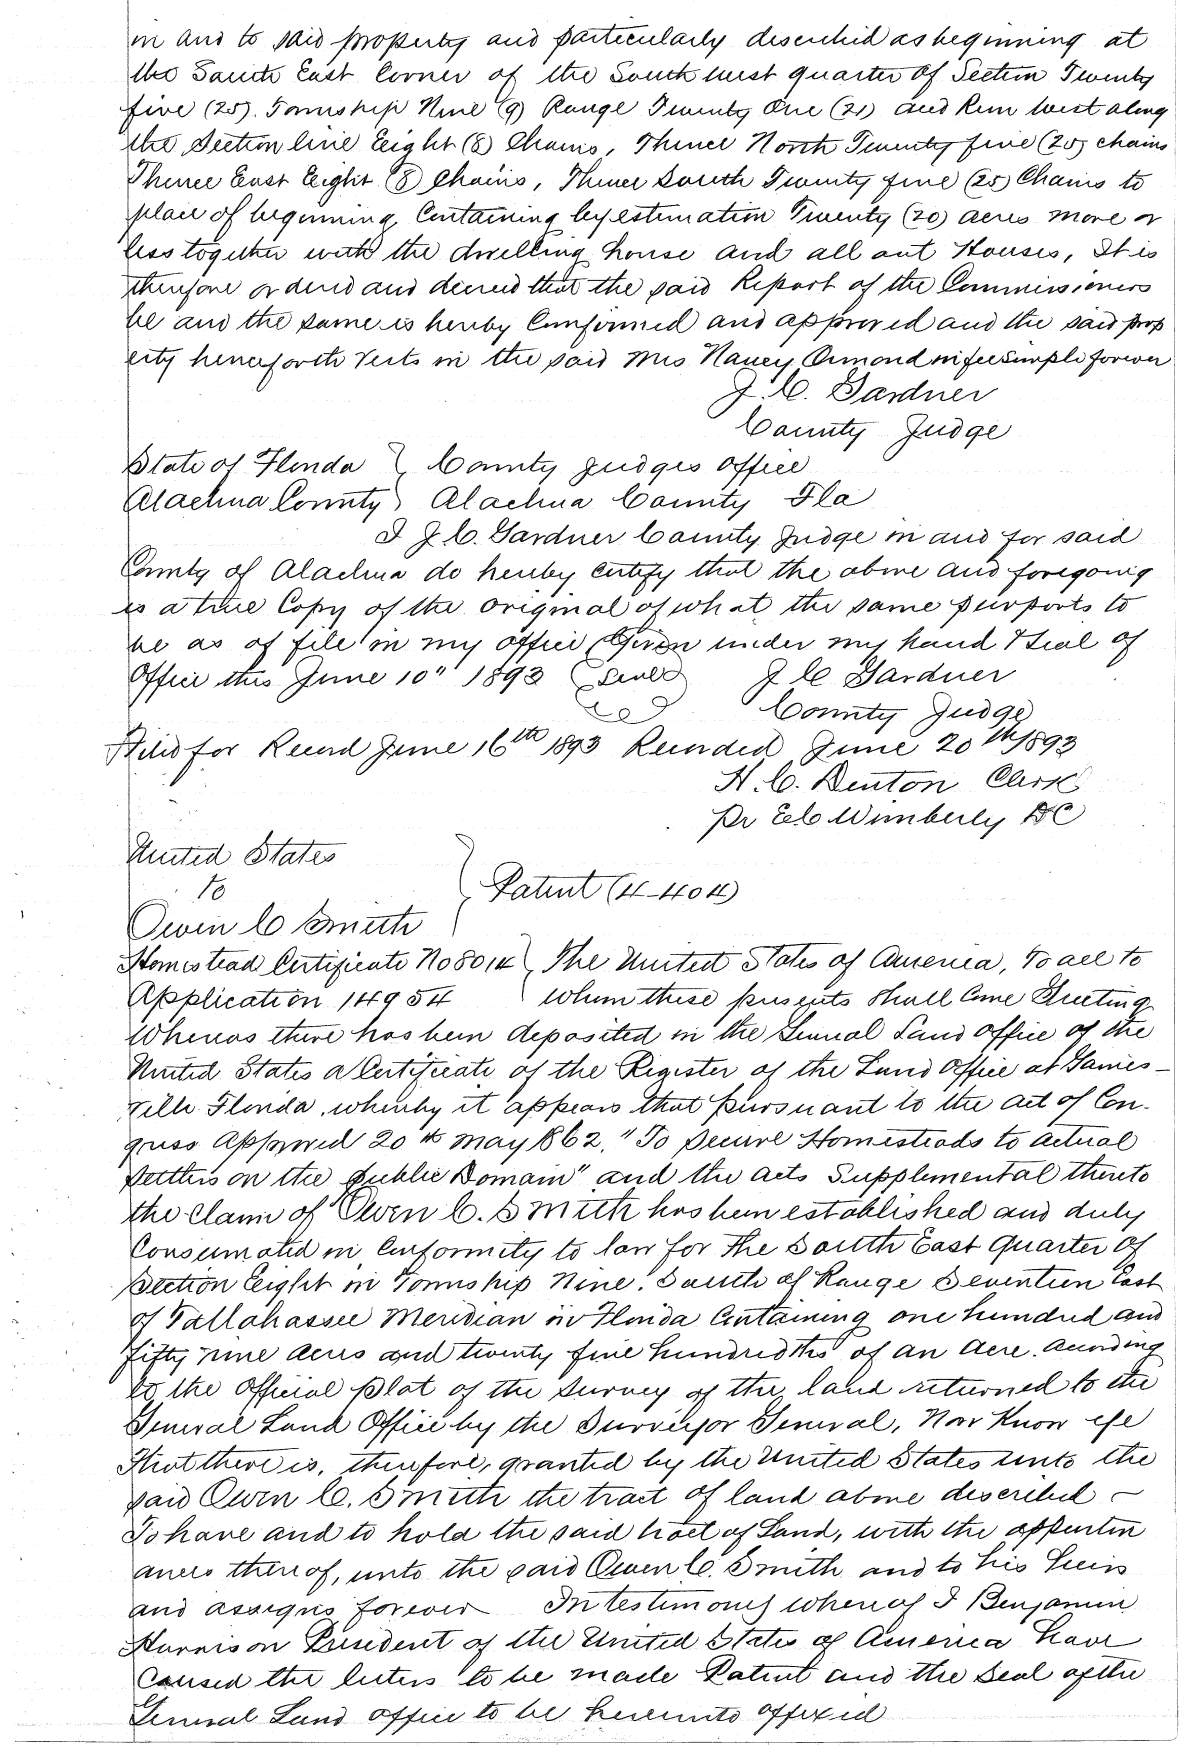 in and to said property and particularly described as beginning at
the South East Corner of the South west quarter of Section Twenty
five (25). Township Nine (9) Range Twenty One (21) and Run west along
the Section line Eight (8) Chains, Thence North Twenty five (25) chains
Thence East Eight (8) Chains, Thence South Twenty five (25) Chains to
place of beginning, Containing by estimation Twenty (20) acres more or
less together with the dwelling house and all out Houses, It is
therefore ordered and decreed that the said Report of the Commissioners
be and the same is hereby Confirmed and approved and the said prop
erty henceforth Vests in the said Mrs Nancy Ormond in fee simple forever
J. C. Gardner
County Judge
State of Florida } County Judges office
Alachua County } Alachua County Fla
I J. C. Gardner County Judge in and for said
County of Alachua do hereby certify that the above and foregoing
is a true Copy of the original of what the same purports to
be as of file in my office Given under my hand & Seal of
Office this June 10" 1893 (Seal) J C Gardner
County Judge
Filed for Record June 16th 1893 Recorded June 20th 1893
H. C. Denton Clerk
Pr E C Wimberly DC
United States
to } Patent (4-404)
Owen C Smith
Homestead Certificate No 8014 } The United States of America, To all to
Application 14954 } whom these presents shall Come Greeting
Whereas there has been deposited in the General Land Office of the
United States a Certificate of the Register of the Land Office at Gaines-
ville Florida, whereby it appears that pursuant to the act of Con-
gress Approved 20th May 1862, "To Secure Homesteads to actual
Settlers on the public Domain" and the acts Supplemental thereto
the Claim of Owen C. Smith has been established and duly
Consumated in Conformity to law for the South East Quarter of
Section Eight in Township Nine. South of Range Seventeen East
of Tallahassee Meridian in Florida Containing one hundred and
fifty nine acres and twenty five hundredths of an Acre. according
to the Official plat of the survey of the land returned to the
General Land Office by the Surveyor General, Now Know Ye
That there is, therefore, granted by the United States unto the
said Owen C. Smith the tract of land above described –
To have and to hold the said tract of Land, with the appurten
ances thereof, unto the said Owen C. Smith and to his heirs
and assigns forever In testimony whereof I Benjamin
Harrison President of the United States of America have
Caused the letters to be made Patent and the Seal of the
General Land office to be hereunto affixed